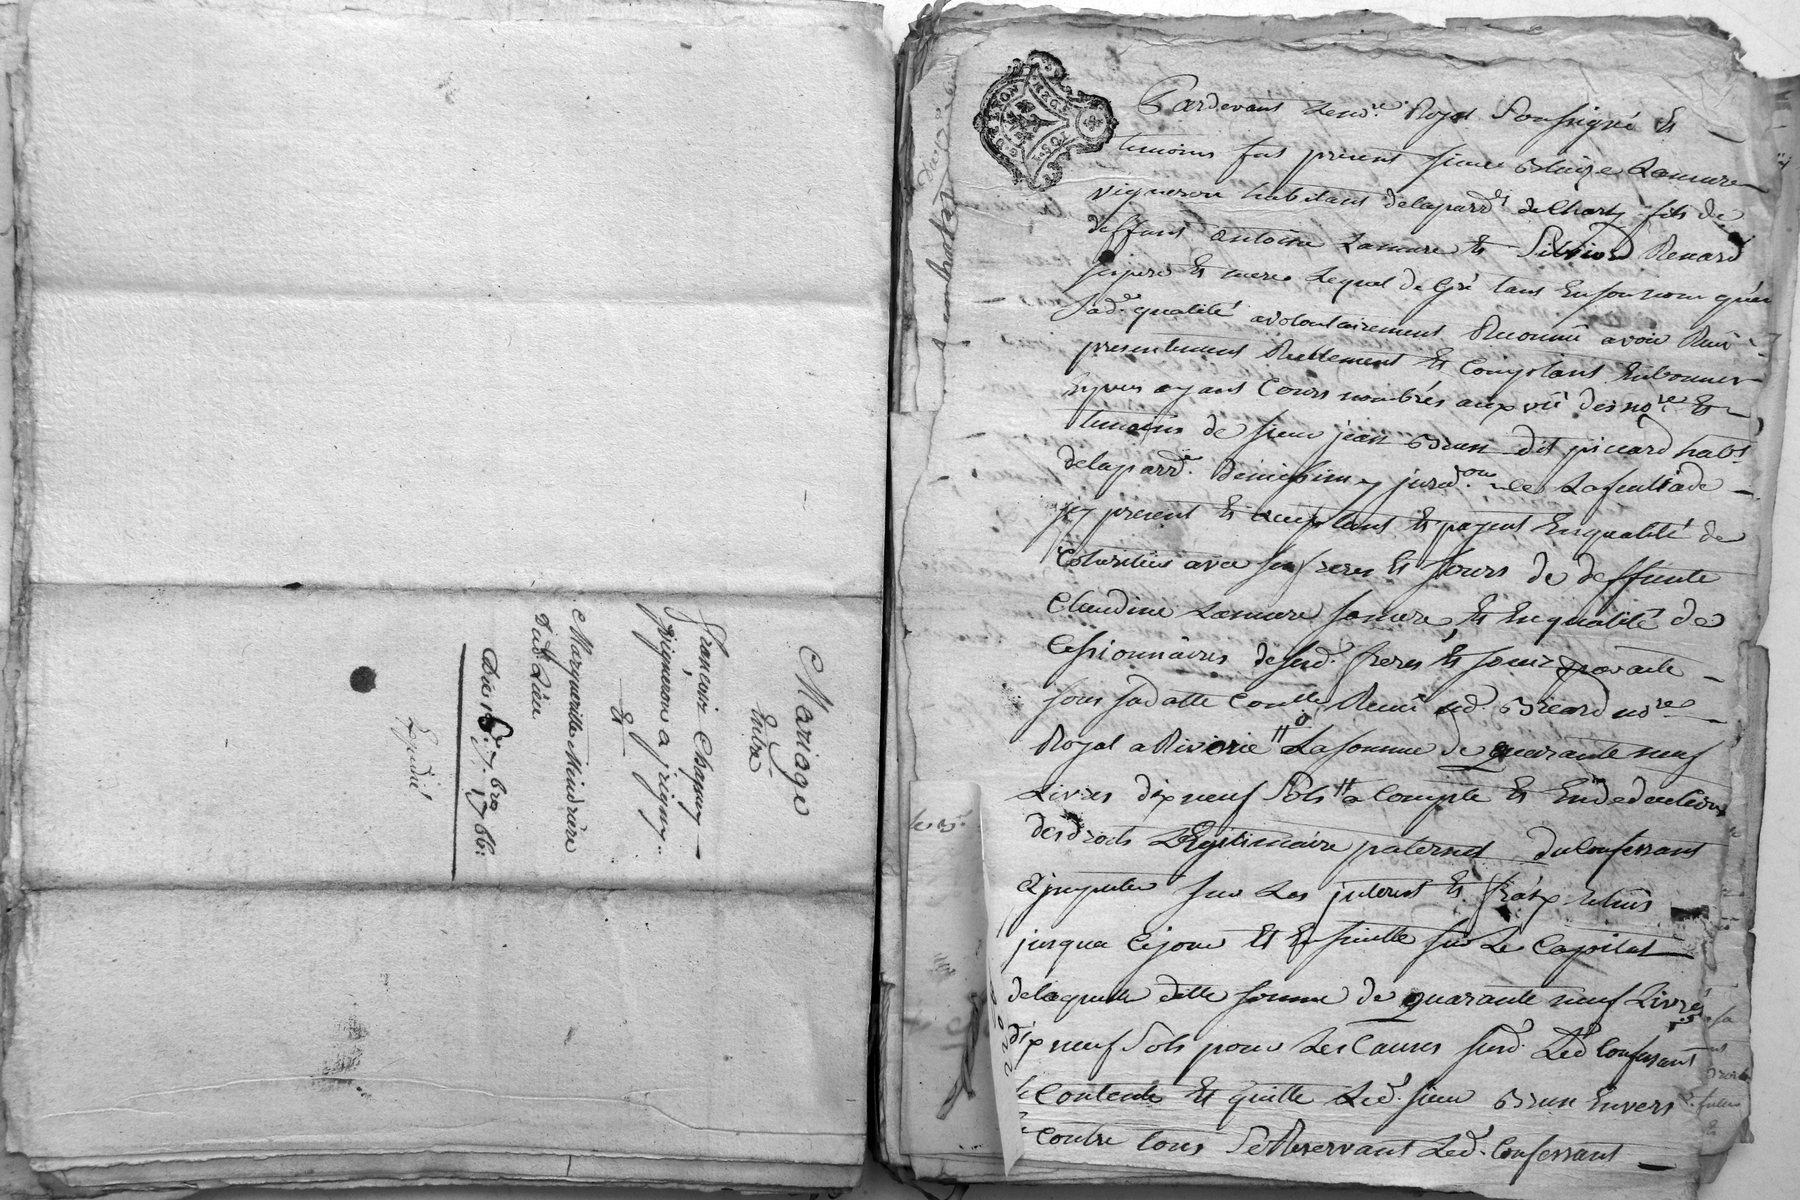 Mariage
Entre
François Chapuy
vigneron a grigny
Et
Margueritte
Dud. Lieu
Du 7.bre 1766:
Expedié
Pardevant Leno.re Royal Soussigné Et
temoins fut present sieur Blaize Lamure
vigneron habitant delaparr.e de Charly fils de
deffunt Antoine Lamure Et Renard
ses pere Et mere Lequel de Gré tant Ensonnom qu'en
sad. qualité avolontairement Reconnû avoir Reçû
presentement Reellement Et Comptant Enbonnes
Espèces ayant Cours nombrés aux vû desno.re Et
temoins de sieur jean Brun dit picard hab.t
delaparr.e jurid.on de Lafeuillade
jcy present Et acceptant Et payant Enqualité de
Coheritier avec ses freres Et Sœurs de deffunte
Claudine Lamure samere, Et Enqualité de
Cessionnaires desesd. freres Et sœurs par acte
sous sadatte Reçû no.re
Royal a Riverie Lasomme de quarante neuf
Livres dix neuf Sols a Compte Et En deduction
desdroits Legitimaire paternel duConfessant
Ajmputer sur Les jnterest Et
jusqua Cejour Et Ensuitte sur Le Capital
delaquelle ditte somme de quarante neuf Livres
dix neuf Sols pour Les Causes susd. Led. Confessant
Contente Et quitte Led. sieur Brun Envers
Et Contre tous SeReservant Led. Confessant